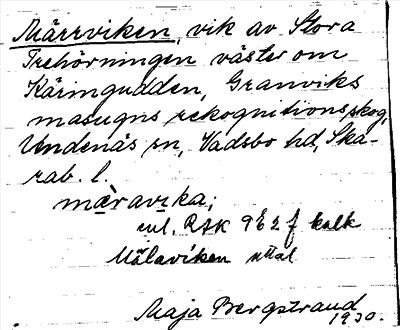 Märrviken, vik av Stora
Trehörningen väster om
Käringudden, Granviks
masugns rekognitionsskog,
Undenäs sn, Vadsbo hd, Ska-
rab. l.
mæ̀ravɩka,
enl. RAK 9E2f kalk
Målaviken uttal
Maja Bergstrand
1930.